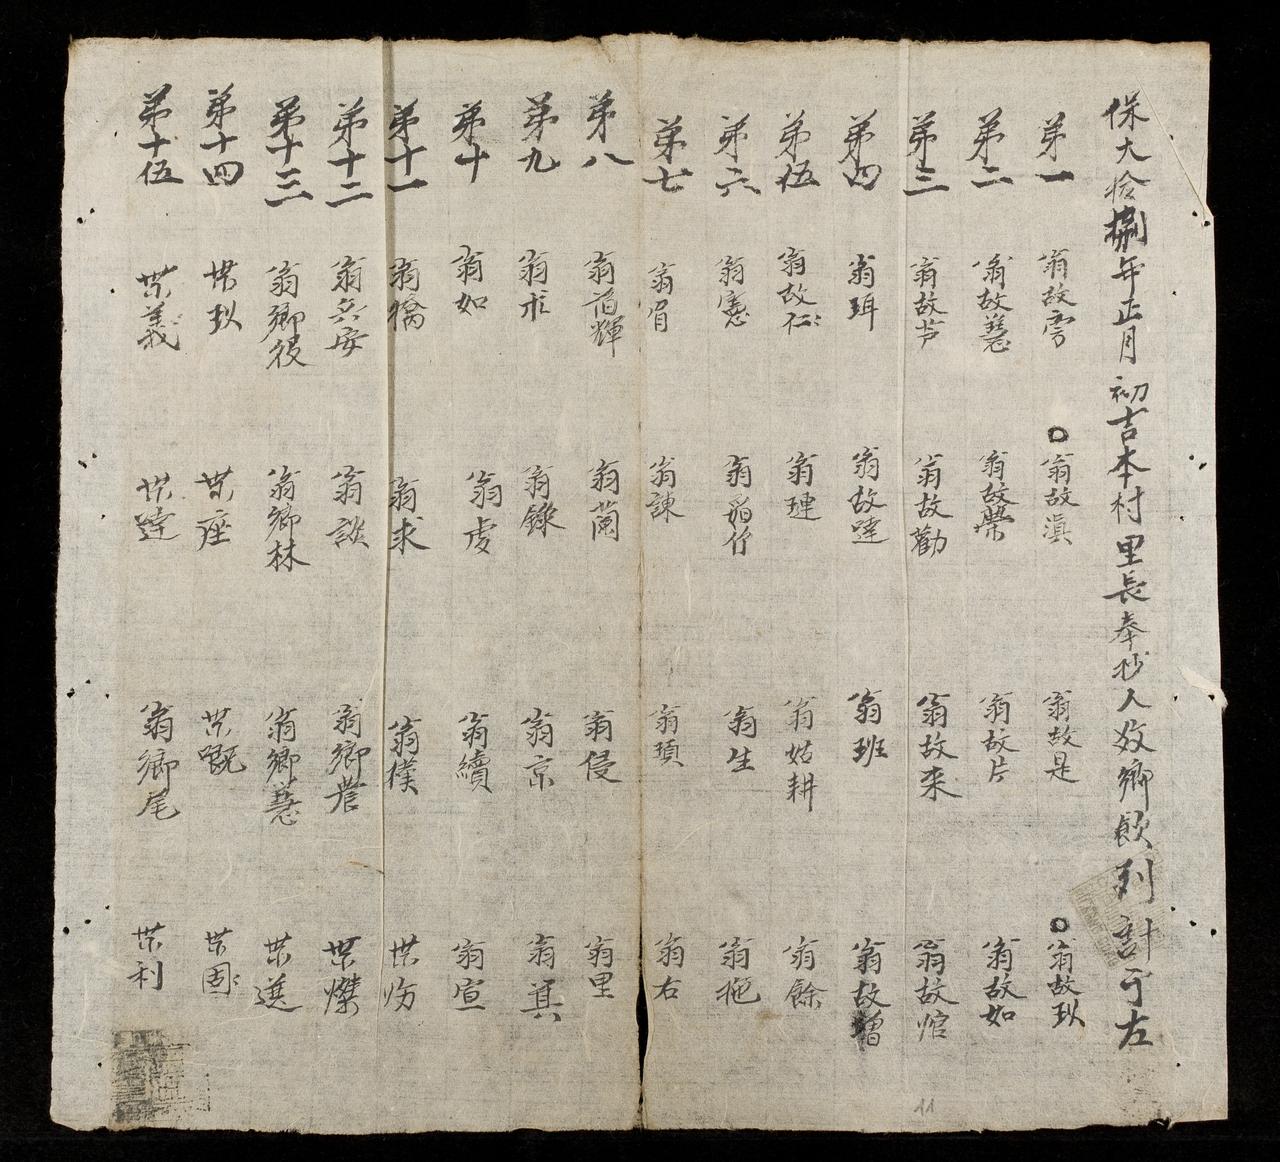 保大拾捌年正月初吉本村里長奉抄人效鄉飲列計于左
第一 翁故滂 翁故滇 翁故是 翁故玖
第二 翁故慈 翁故榮 翁故片 翁故如
第三 翁故芦 翁故勸 翁故来 翁故馆
第四 翁珥 翁故達 翁班 翁故增
第伍 翁故仁 翁璉 翁姑耕 翁餘
第六 翁憲 翁生 翁
第七 翁眉 翁諌 翁頊 翁右
第八 翁 輝 翁蘭 翁侵 翁里
第九 翁 翁錄 翁京 翁真
第十 翁如 翁虔 翁續 翁宣
第十一 翁 翁求 翁僕
第十二 翁 安 翁談 翁鄉農 燦
第十三 翁鄉役 翁鄉林 翁鄉慈 選
第十四 玖 座 嘅 固
第十伍 義 達 翁鄉尾 利
11